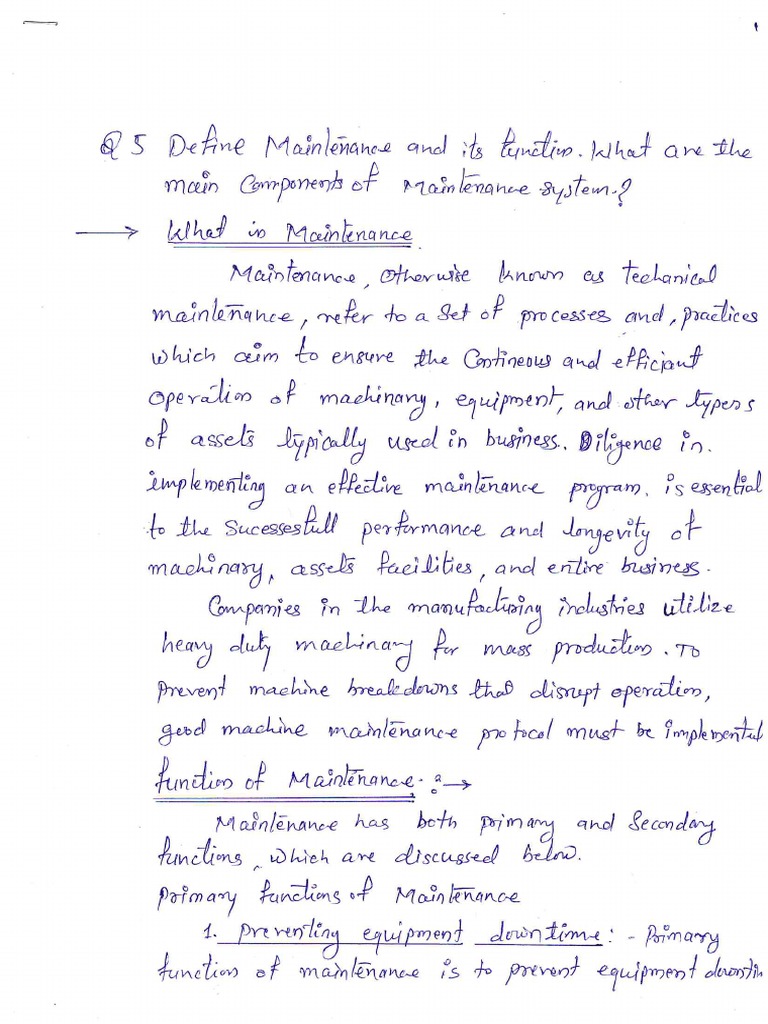 Q 5 Define Maintenance and its function. What are the
main Components of Maintenance system.?
→ What is Maintenance
Maintenance, otherwise known as techanical
maintenance, refer to a set of processes and, practices
which aim to ensure the Contineous and efficient
operation of machinary, equipment, and other typers
of assets typically used in business. Diligence in.
implementing an effective maintenance program. is essential
to the Sucessesfull performance and longevity of
machinary, assets facilities, and entire business.
Companies in the manufacturing industries utilize
heavy duty machinary for mass production. To
prevent machine breakdowns that disrupt operation,
good machine maintenance protocol must be implemented
function of Maintenance. : →
Maintenance has both primary and Secondary
functions, which are discussed below.
primary functions of Maintenance
1. preventing equipment downtime: - Primary
function of maintenance is to prevent equipment downtin